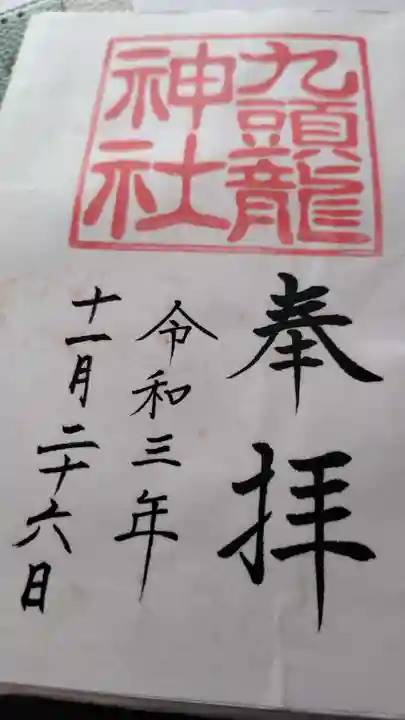 九頭龍
神社
奉拝
令和三年
十一月二十六日